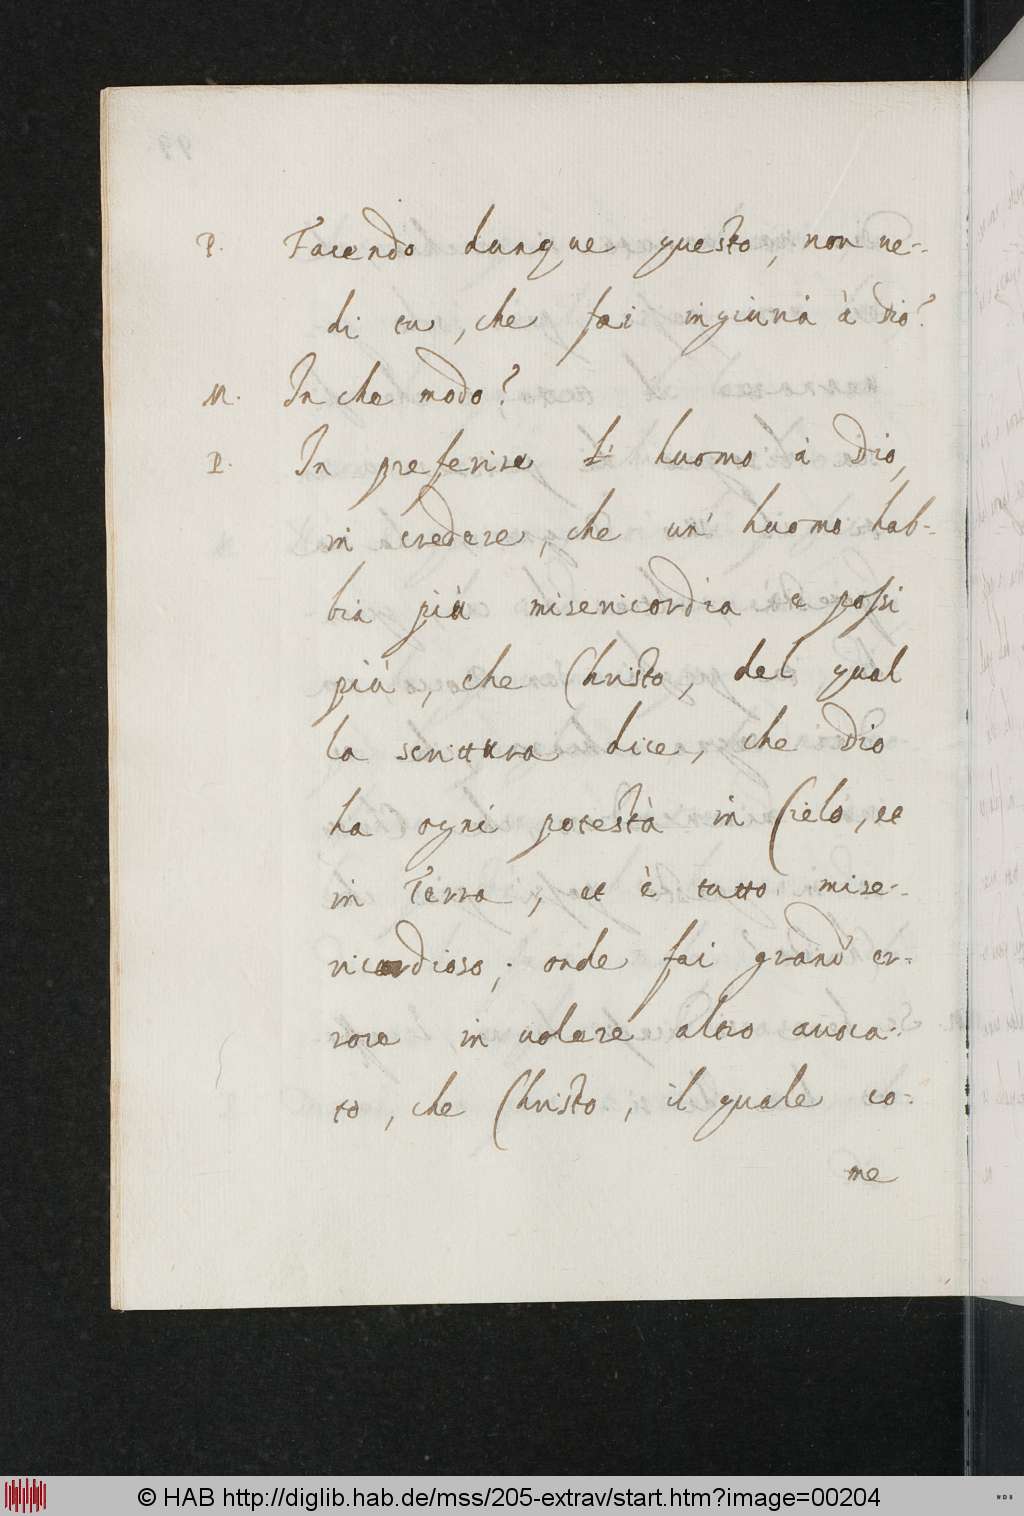 P. Facendo dunque questo, non ue-
di tu, che fai ingiuria à Dio?
M. In che modo?
P. In preferire l' huomo à Dio,
in credere, che un' huomo hab-
bia più misericordia e possi
più, che Christo, del qual
la scrittura dice, che Dio
ha ogni potestà in Cielo, et
in Terra, et è tutto mise-
ricordioso; onde fai grand' er-
rore in uolere altro auoca-
to, che Christo, il quale co-
me
© HAB http://diglib.hab.de/mss/205-extrav/start.htm?image=00204